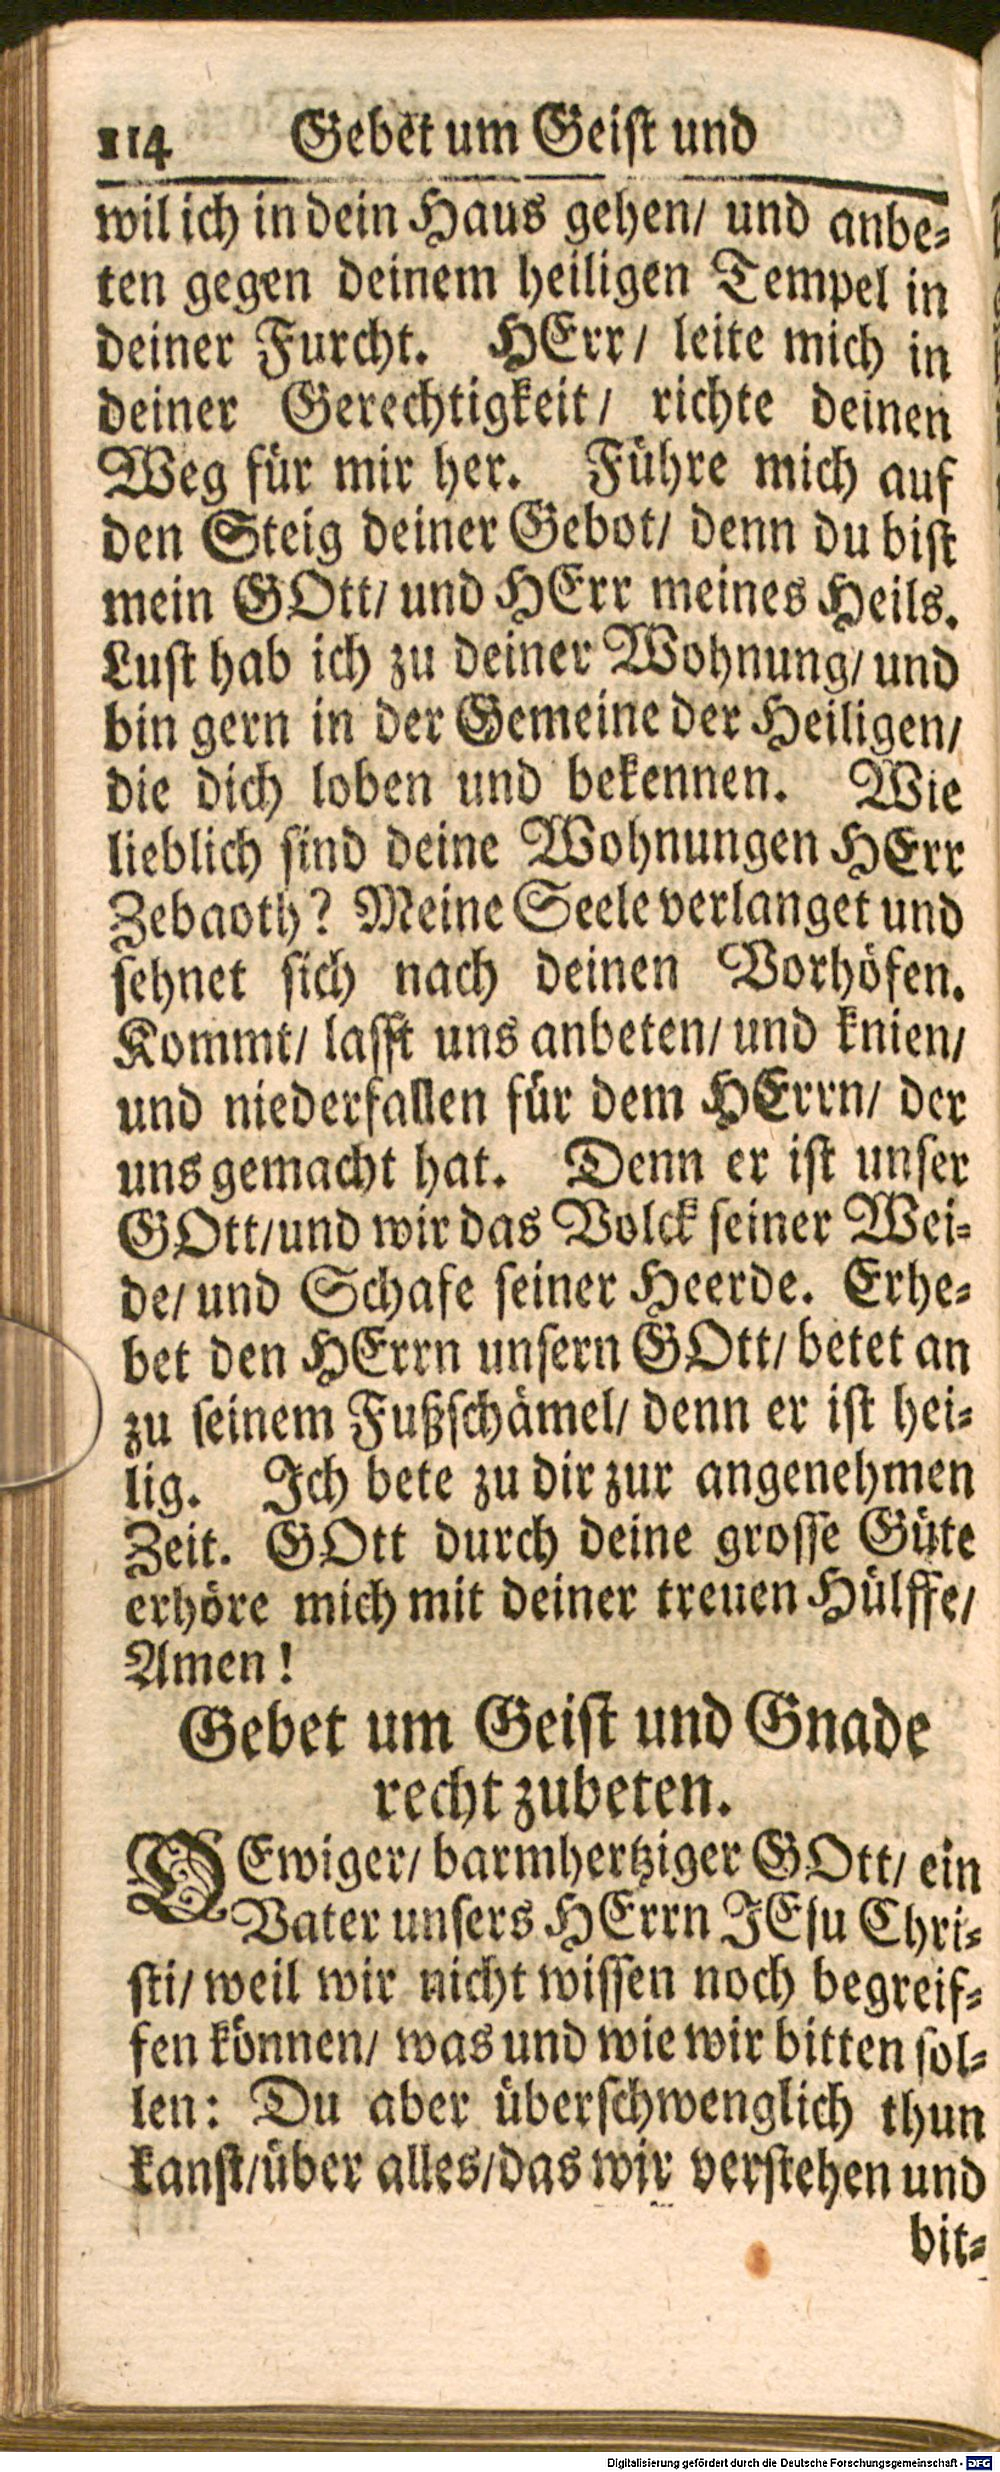 114 Gebet um Geist und
wil ich in dein Haus gehen/ und anbe-
ten gegen deinem heiligen Tempel in
deiner Furcht. HErr/ leite mich in
deiner Gerechtigkeit/ richte deinen
Weg für mir her. Führe mich auf
den Steig deiner Gebot/ denn du bist
mein GOtt/ und HErr meines Heils.
Lust hab ich zu deiner Wohnung/ und
bin gern in der Gemeine der Heiligen/
die dich loben und bekennen. Wie
lieblich sind deine Wohnungen HErr
Zebaoth? Meine Seele verlanget und
sehnet sich nach deinen Vorhöfen.
Kommt/ lasst uns anbeten/ und knien/
und niederfallen für dem HErrn/ der
uns gemacht hat. Denn er ist unser
GOtt/und wir das Volck seiner Wei-
de/ und Schafe seiner Heerde. Erhe-
bet den HErrn unsern GOtt/ betet an
zu seinem Fußschämel/ denn er ist hei-
lig. Ich bete zu dir zur angenehmen
Zeit. GOtt durch deine grosse Güte
erhöre mich mit deiner treuen Hülffe/
Amen!
Gebet um Geist und Gnade
recht zubeten.
O Ewiger/ barmhertziger GOtt/ ein
Vater unsers HErrn JEsu Chri-
sti/ weil wir nicht wissen noch begreif-
fen können/ was und wie wir bitten sol-
len: Du aber überschwenglich thun
kanst/über alles/das wir verstehen und
bit-
Digitalisierung gefördert durch die Deutsche Forschungsgemeinschaft - DFG